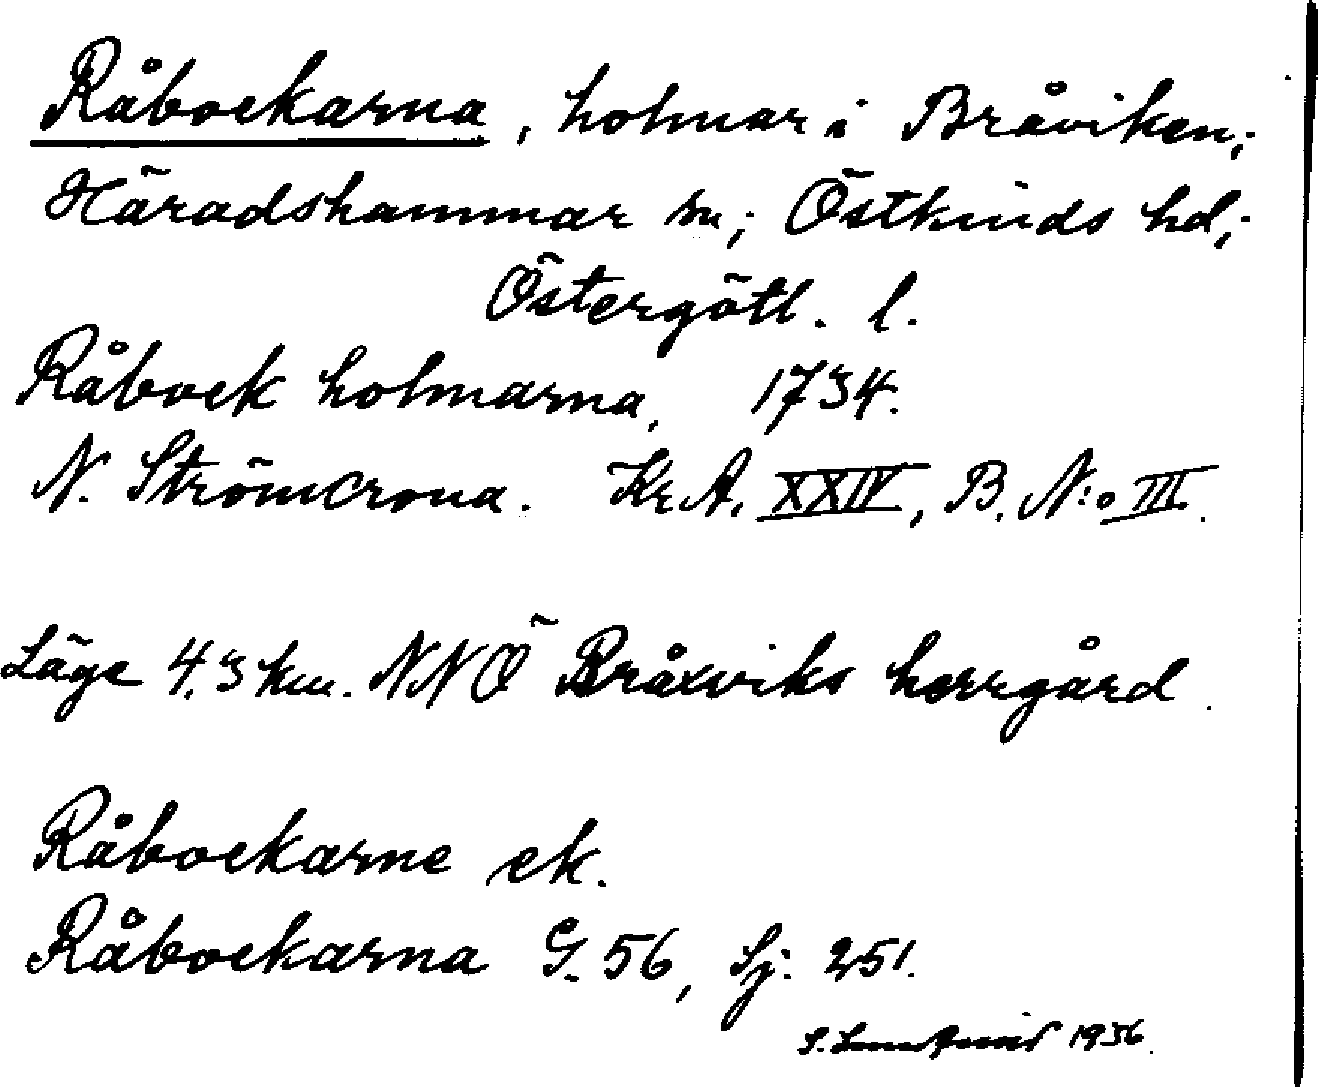 Råbockarna, holmar i Bråviken;
Häradshammar sn; Östkinds hd;
Östergötl. l.
Råbock holmarna, 1734.
N. Strömcrona. Kr.A. XXIV, B. N:o III.
Läge 4,3 km. NNÖ Bråxviks herrgård.
Råbockarne ek.
Råbockarna G. 56, Sj. 251.
S. 1936.